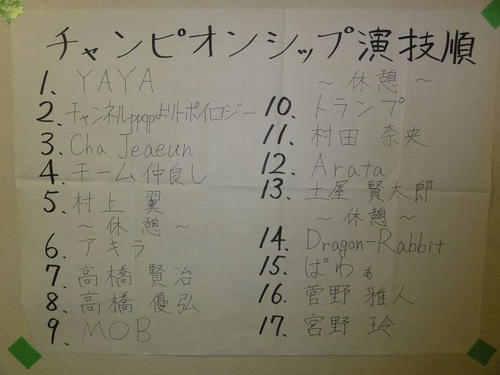 チャンピオンシップ演技順
1. YAYA
2. チャンネルppqpよりトポイロジー
3. Cha Jeaeun
4. チーム仲良し
5. 村上 翼
～ 休憩 ～
6. アキラ
7. 高橋 賢治
8. 高橋 優弘
9. MOB
～ 休憩 ～
10. トランプ
11. 村田 奈央
12. Arata
13. 土屋 賢太郎
～ 休憩 ～
14. Dragon-Rabbit
15. ぱわぁ
16. 菅野 雅人
17. 宮野 玲